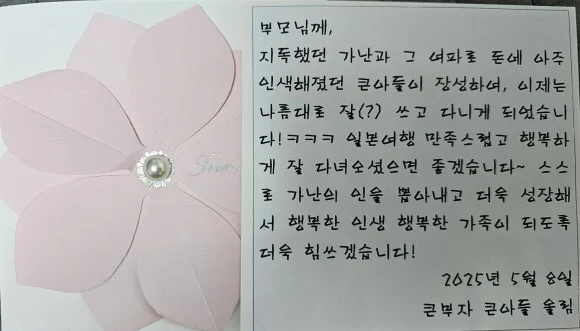 부모님께,
지독했던 가난과 그 여파로 돈에 아주
인색해졌던 큰아들이 장성하여, 이제는
나름대로 잘(?) 쓰고 다니게 되었습니
다!ㅋㅋㅋ 일본여행 만족스럽고 행복하
게 잘 다녀오셨으면 좋겠습니다~ 스스
로 가난의 인을 뽑아내고 더욱 성장해
서 행복한 인생 행복한 가족이 되도록
더욱 힘쓰겠습니다!
2025년 5월 8일
큰부자 큰아들 올림